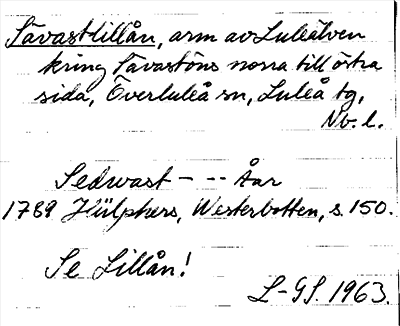 Sävastlillån, arm av Luleälven
kring Sävastöns norra till östra
sida, Överluleå sn, Luleå tg,
Nb. l.
Sedwast - -- Åar
1789 Hülphers, Westerbotten, s. 150.
Se Lillån!
L-GS. 1963.